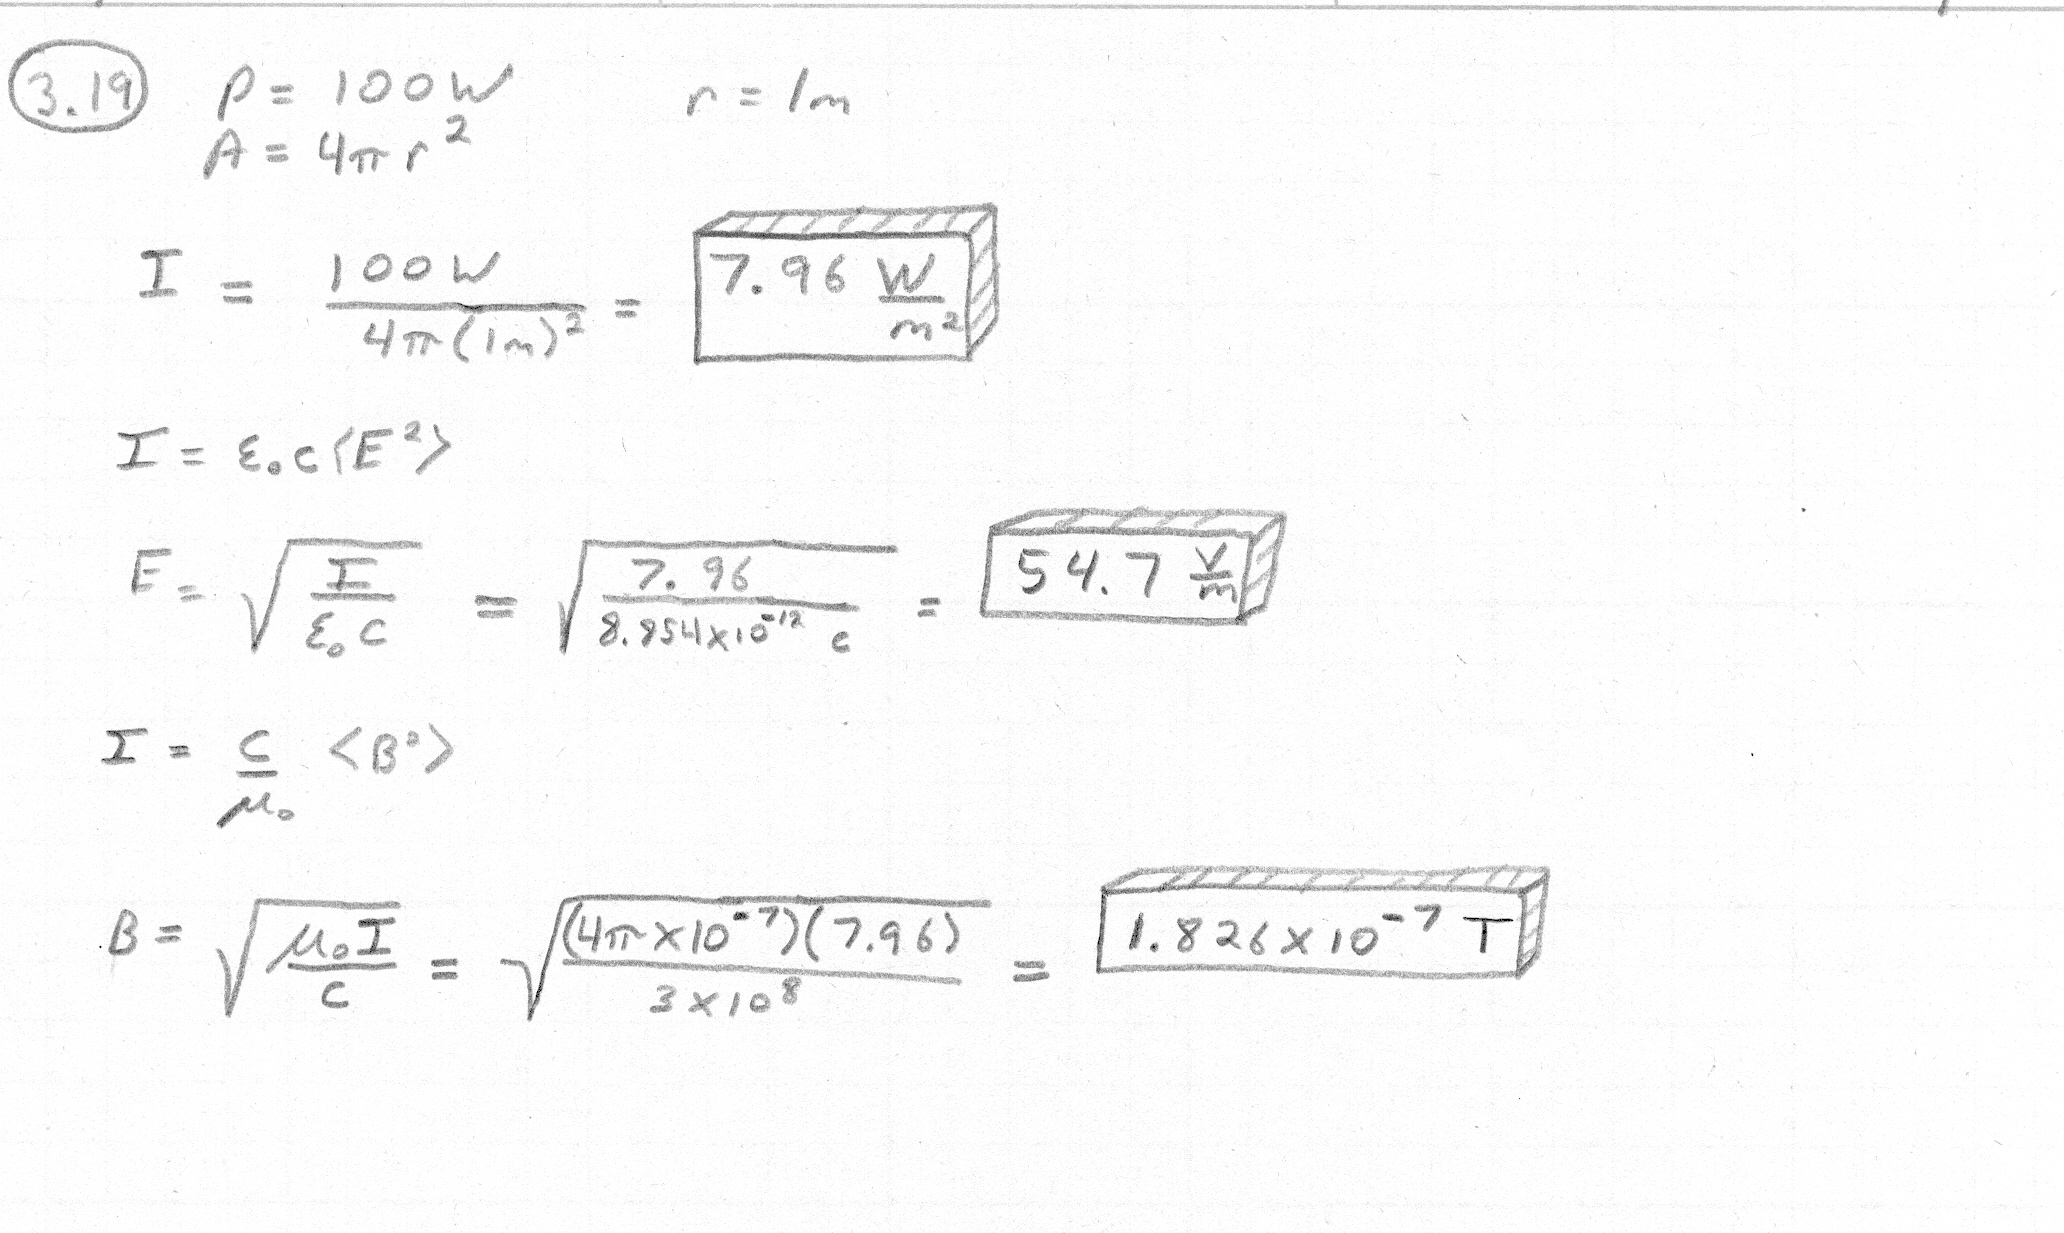 3.19 P = 100W r = 1m
A = 4πr²
I = 100W / 4π(1m)² = 7.96 W/m²
I = ε₀c⟨E²⟩
E = √(I / ε₀c) = √(7.96 / 8.854×10⁻¹² c) = 54.7 V/m
I = c/μ₀ ⟨B²⟩
B = √(μ₀I / c) = √((4π×10⁻⁷)(7.96) / 3×10⁸) = 1.826×10⁻⁷ T